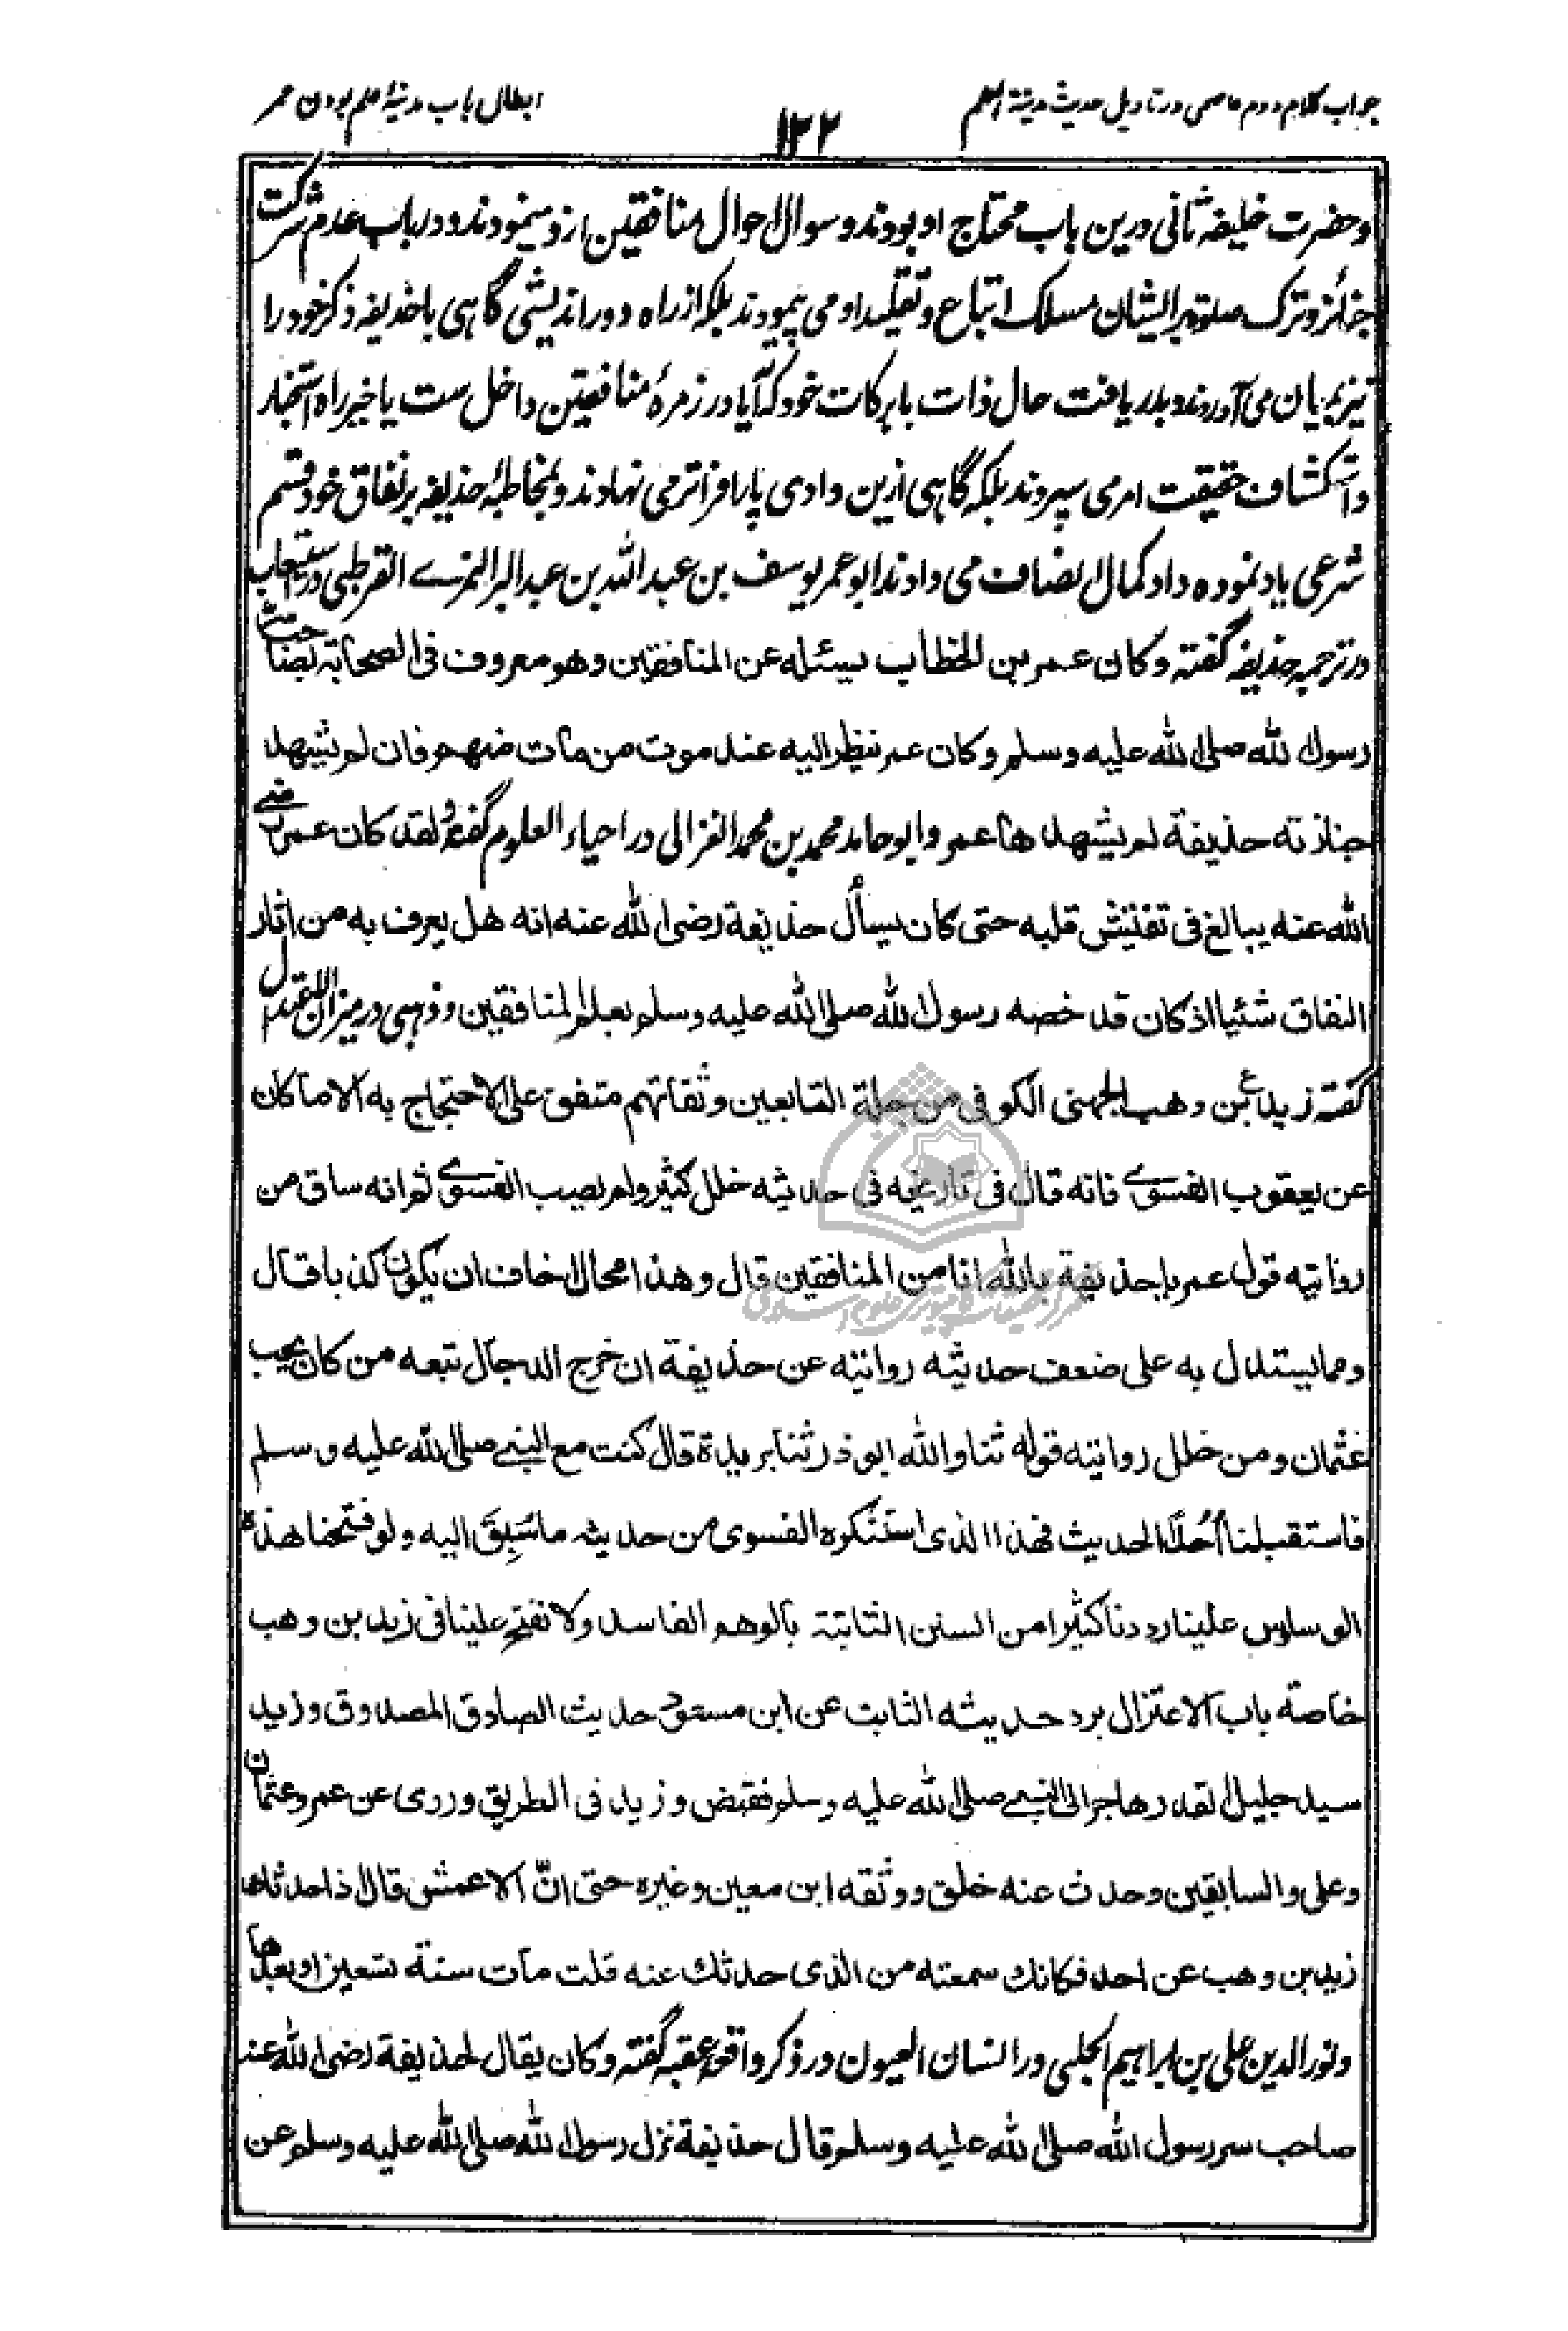 جواب کلام دوم عاصمی در تاویل حدیث مدینة العلم
۱۲۲
ابطال باب مدینهٔ علم بودن عمر
و حضرت خلیفه ثانی درین باب محتاج او بودند و سوال احوال منافقین ازو مینمودند و در باب عدم شرکت
جنائز و ترک صلوة بر ایشان مسلک اتباع و تقلید او می پیمودند بلکه از راه دور اندیشی گاهی با حذیفه ذکر خود را
نیز بمیان می آوردند و بدریافت حال ذات بابرکات خود که آیا در زمرهٔ منافقین داخل ست یا خیر راه استخبار
و استکشاف حقیقت امر می سپردند بلکه گاهی ازین وادی پا را فراتر می نهادند و بمخاطبهٔ حذیفه بر نفاق خود قسم
شرعی یاد نموده داد کمال انصاف می دادند ابو عمر یوسف بن عبد الله بن عبد البر النمری القرطبی در استیعاب
در ترجمه حذیفه گفته و کان عمر بن الخطاب یسئله عن المنافقین وهو معروف فی الصحابة بصاحب سر
رسول الله صلی الله علیه وسلم وکان عمر ینظر الیه عند موت من مات منهم فان لم یشهد
جنازته حذیفة لم یشهدها عمر و ابو حامد محمد بن محمد الغزالی در احیاء العلوم گفته و لقد کان عمر رضی
الله عنه یبالغ فی تفتیش قلبه حتی کان یسأل حذیفة رضی الله عنه انه هل یعرف به من اثار
النفاق شئیا اذ کان قد خصه رسول الله صلی الله علیه وسلم بعلم المنافقین و ذهبی در میزان الاعتدال
گفته زید بن وهب الجهنی الکوفی من جلة التابعین وثقاتهم متفق علی الاحتجاج به الا ما کان
عن یعقوب الفسوی فانه قال فی تاریخه فی حدیثه خلل کثیر ولم یصب الفسوی ثم انه ساق من
روایته قول عمر یا حذیفة بالله انا من المنافقین قال وهذا محال اخاف ان یکون کذبا قال
ومما یستدل به علی ضعف حدیثه روایته عن حذیفة ان خرج الدجال تبعه من کان یحب
عثمان ومن خلل روایته قوله ثنا والله ابو ذر ثنا بریدة قال کنت مع النبی صلی الله علیه وسلم
فاستقبلنا اُحُداً الحدیث فهذا الذی استنکره الفسوی من حدیثه ما سُبِقَ الیه ولو فتحنا هذه
الوساوس علینا رددنا کثیرا من السنن الثابتة بالوهم الفاسد ولا نفتح علینا فی زید بن وهب
خاصة باب الاعتزال برد حدیثه الثابت عن ابن مسعود حدیث الصادق المصدوق وزید
سید جلیل القدر هاجر الی النبی صلی الله علیه وسلم فقبض وزید فی الطریق وروی عن عمر وعثمان
وعلی والسابقین وحدث عنه خلق ووثقه ابن معین وغیره حتی انّ الاعمش قال اذا حدثک
زید بن وهب عن احد فکانک سمعته من الذی حدثک عنه قلت مات سنة تسعین او بعدها
و نور الدین علی بن ابراهیم الحلبی در انسان العیون در ذکر واقعه عقبه گفته وکان یقال لحذیفة رضی الله عنه
صاحب سر رسول الله صلی الله علیه وسلم قال حذیفة نزل رسول الله صلی الله علیه وسلم عن